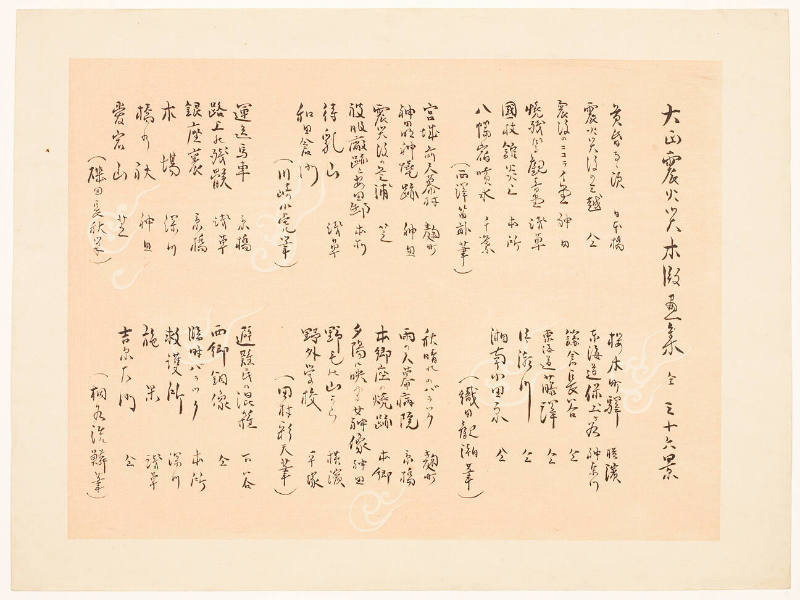 大正震火災木版畫集 全 三十六景
黄昏る頃 日本橋
震火災後の三越 仝
震後のニコライ堂 神田
焼残りし觀音堂 浅草
國技館炎上 本所
八幡宿噴水 千葉
(西澤笛畝筆)
宮城前天幕村 麹町
神田明神焼跡 神田
震災後の芝浦 芝
被服廠跡と安田邸 本所
待乳山 浅草
和田倉門
(川崎小虎筆)
運送馬車 京橋
路上の殘骸 浅草
銀座裏 京橋
木場 深川
橋の袂 神田
愛宕山 芝
(磯田長秋筆)
桜木町驛 横濱
東海道保土ヶ谷 神奈川
鎌倉長谷 仝
東海道藤澤 仝
川 仝
湘南小田原 仝
(織田觀潮筆)
秋晴れのバラック 麹町
雨の天幕病院 京橋
本郷座の焼跡 本郷
夕陽に映ゆる女神像 神田
野毛の山 横濱
野外学校 平塚
(田村彩天筆)
避難民の混雑 下谷
西郷銅像 仝
臨時バラック 本所
救護所 深川
施米 浅草
吉原大門 仝
(桐谷洗鱗筆)